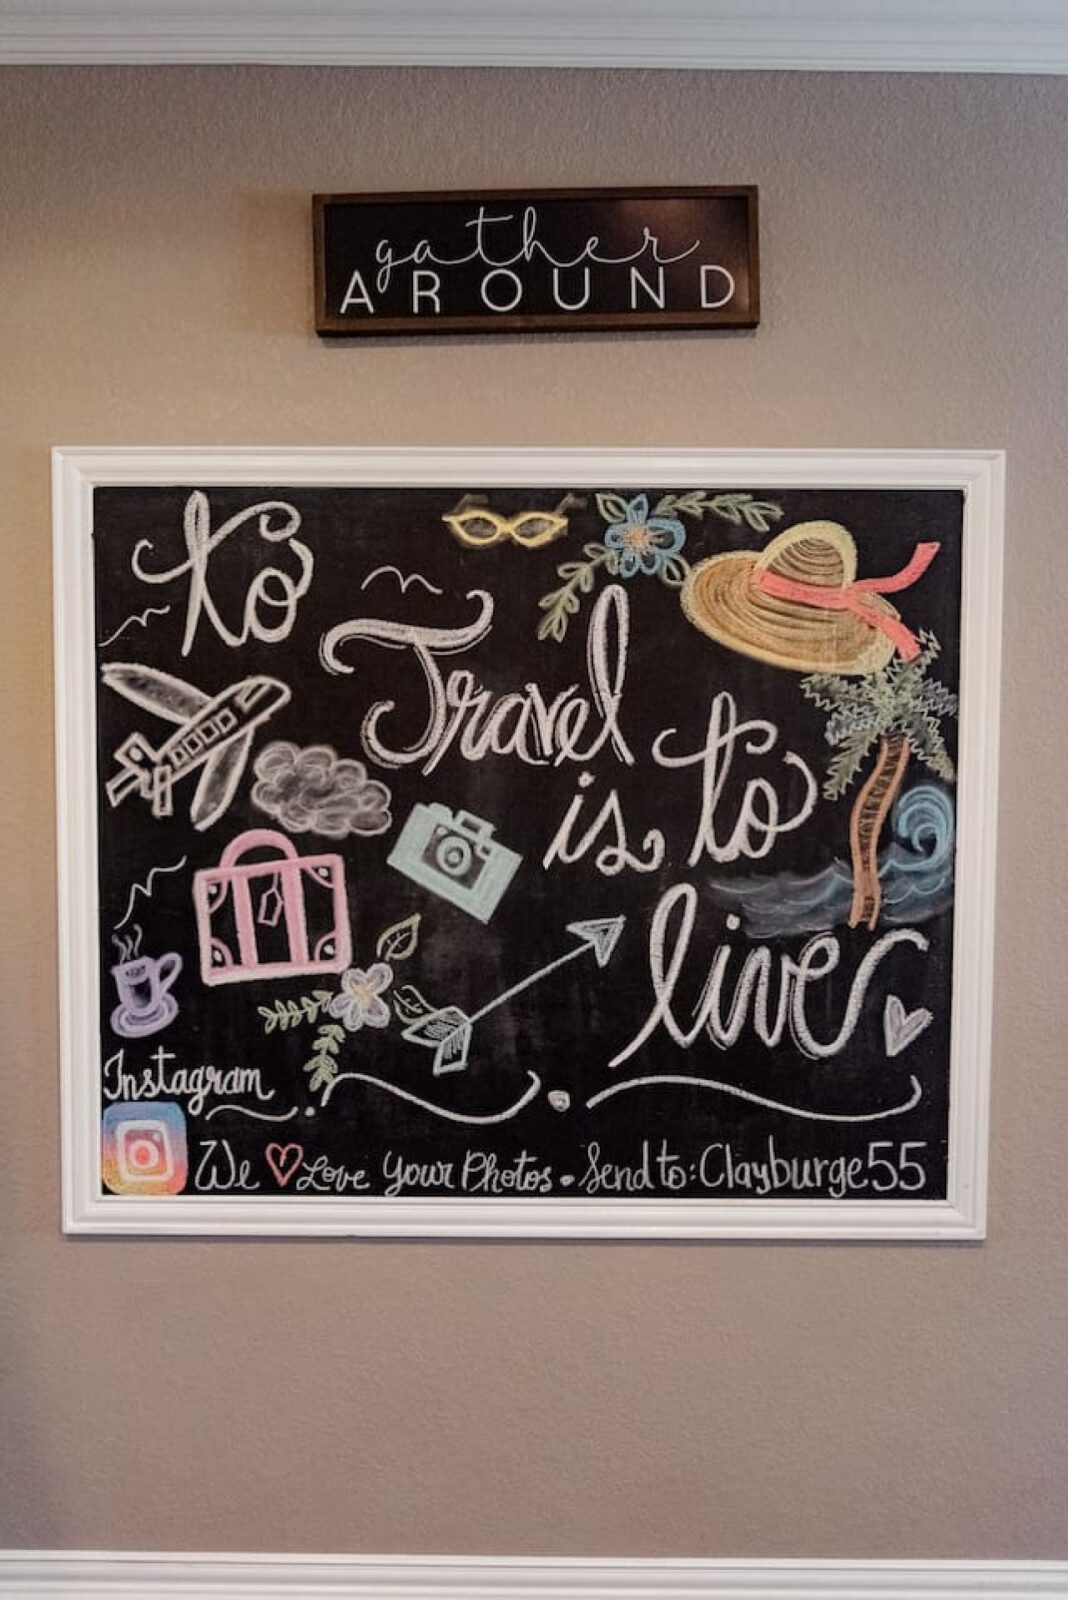 gather
AROUND
to
Travel
is to
live
Instagram
We Love Your Photos. Send to: Clayburge55